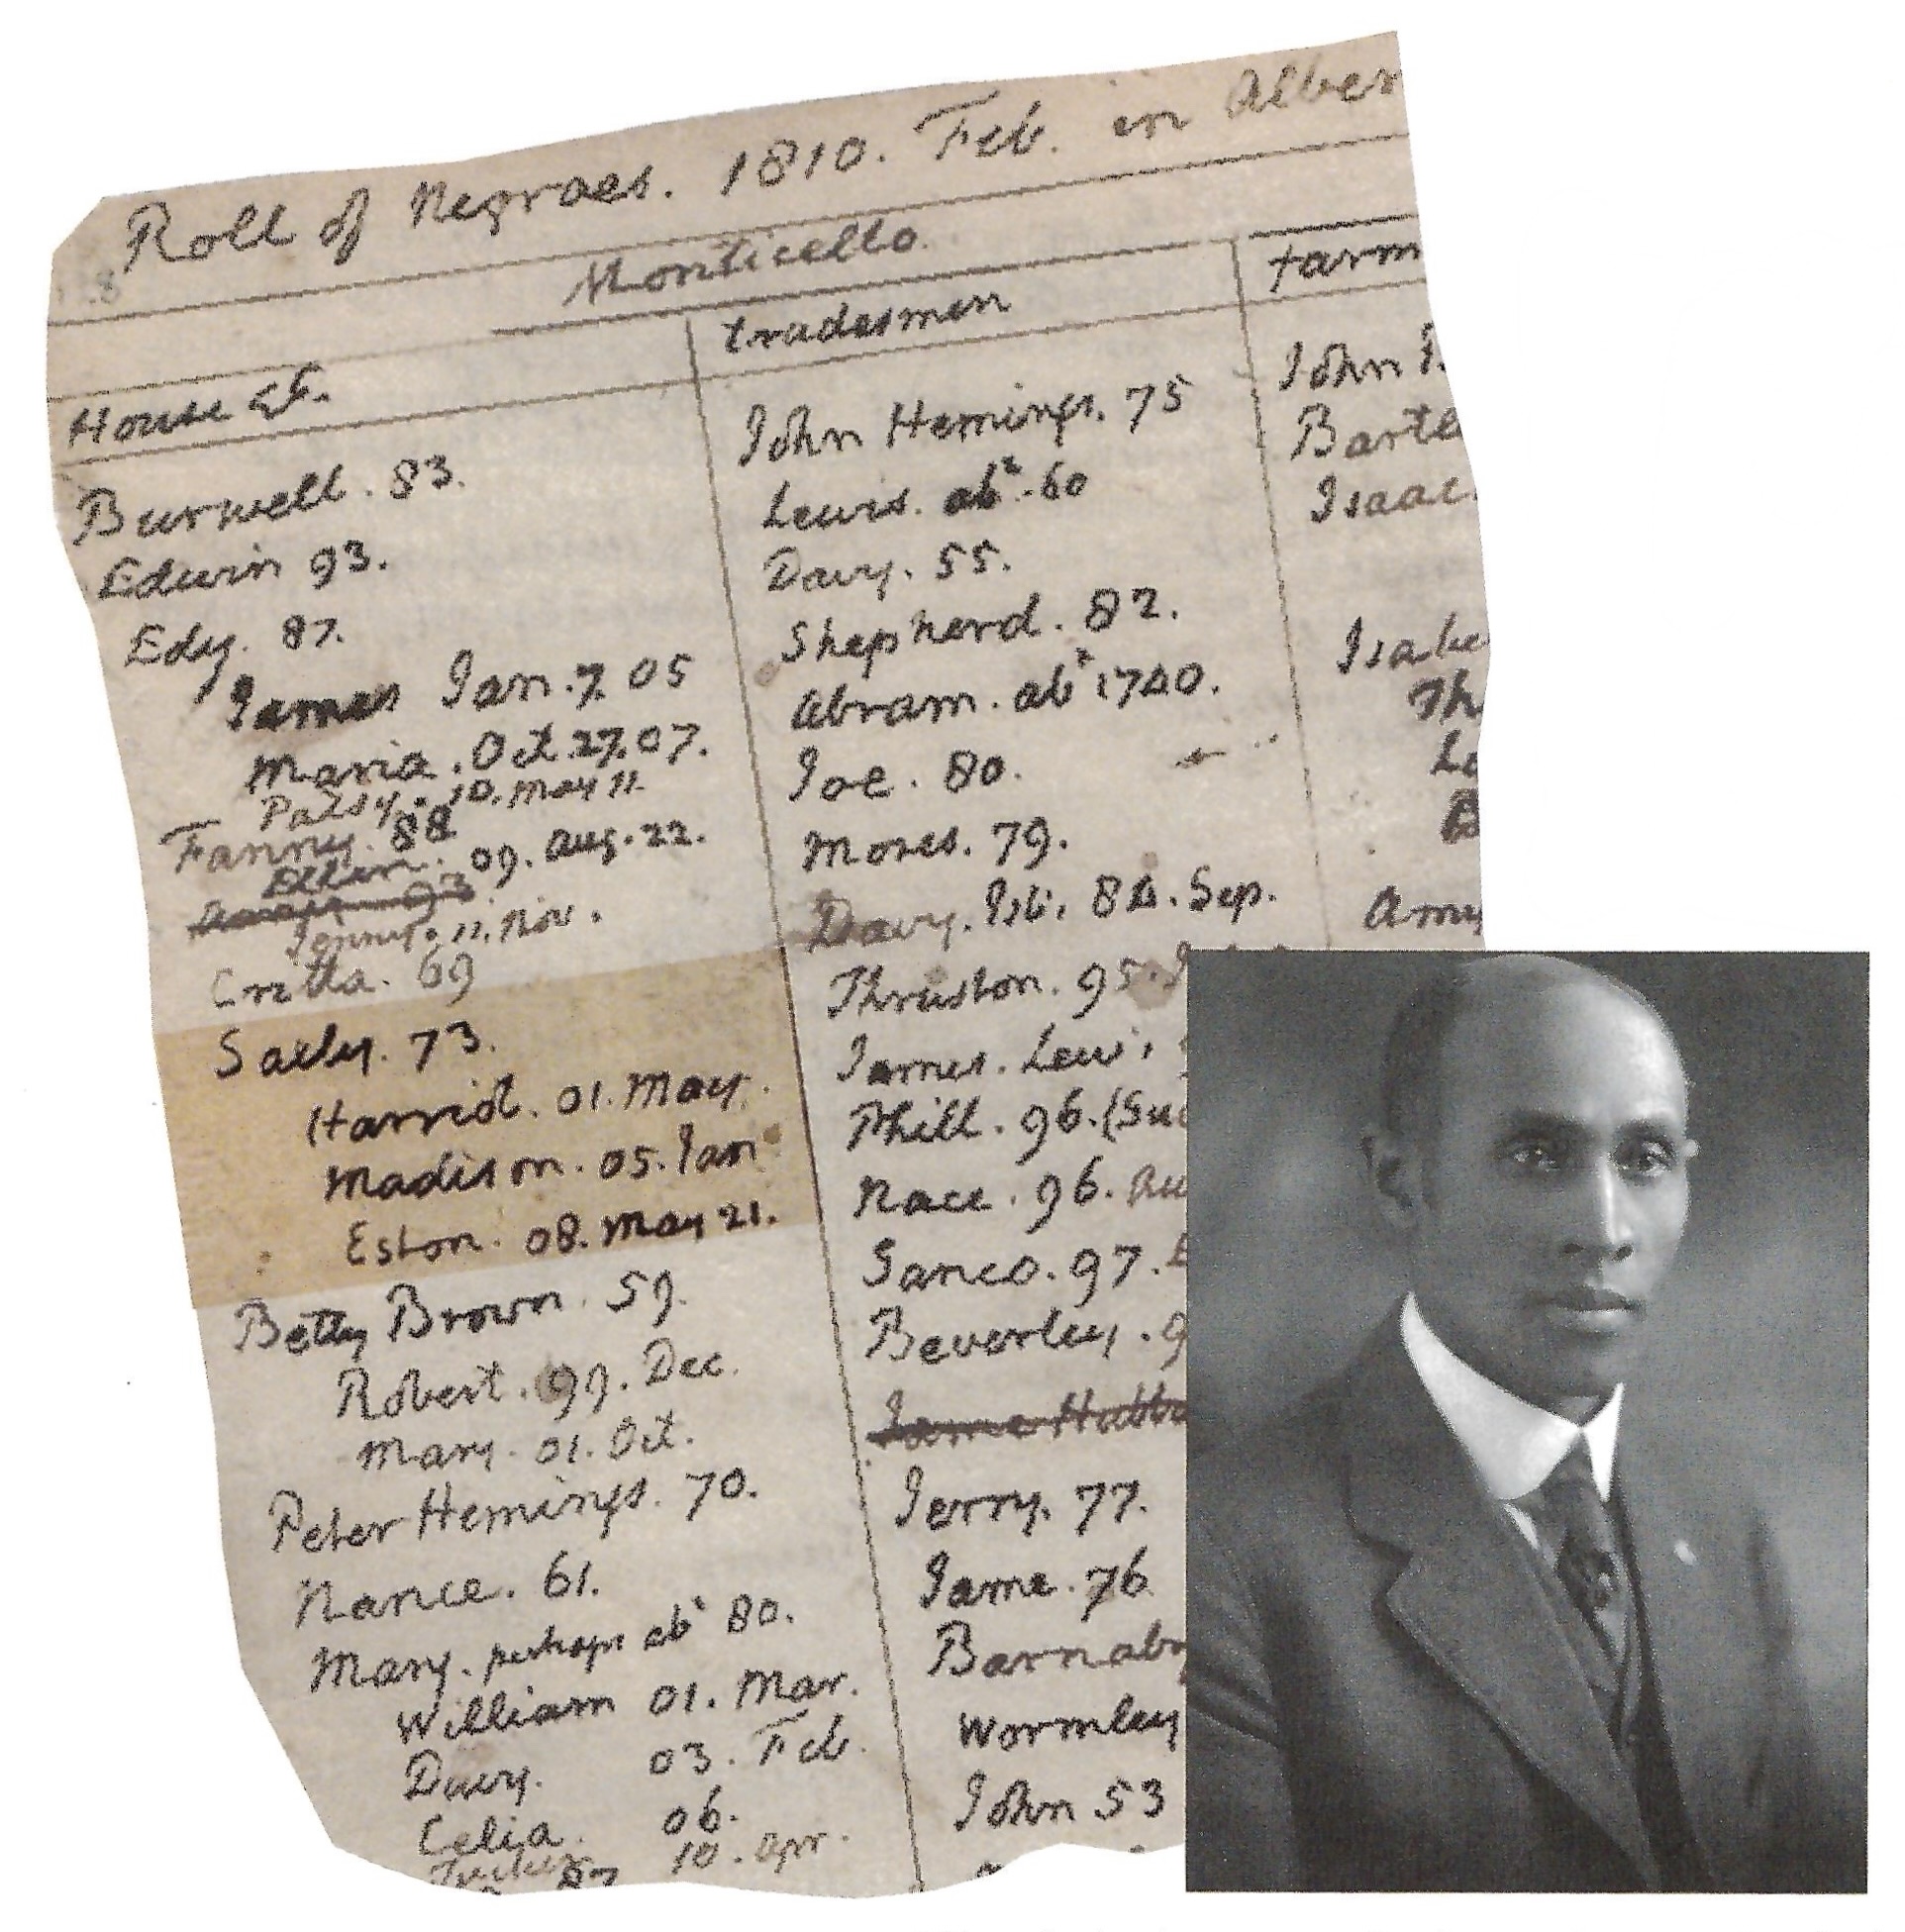 Roll of Negroes. 1810. Feb. in Alber
Monticello.
House &c.
Burwell. 83.
Edwin 93.
Edy. 87.
James Jan. 7. 05
Maria. Oct 27. 07.
Patsy. 10. May 11.
Fanny. 88
Ellen. 09. Aug. 22.
Jenny. 11. Nov.
Critta. 69
Sally. 73.
Harriet. 01. May.
Madison. 05. Jan
Eston. 08. May 21.
Betty Brown. 59.
Robert. 99. Dec.
Mary. 01. Oct.
Peter Hemings. 70.
Nance. 61.
Mary. perhaps abt 80.
William 01. Mar.
Davy. 03. Feb.
Celia. 06.
Tucker 10. Apr.
tradesmen
John Hemings. 75
Lewis. abt. 60
Davy. 55.
Shepherd. 82.
Abram. abt 1740.
Joe. 80.
Moses. 79.
Davy. 84. Sep.
Thruston. 95.
James. Lew
Phill. 96. (Su
Nace. 96. Au
Sanco. 97.
Beverley. 9
Jame Hubba
Jerry. 77.
Jame. 76
Barnaby
Wormley
John 53
farm
John
Bartle
Isaac.
Isabe
Th
Lo
Amy